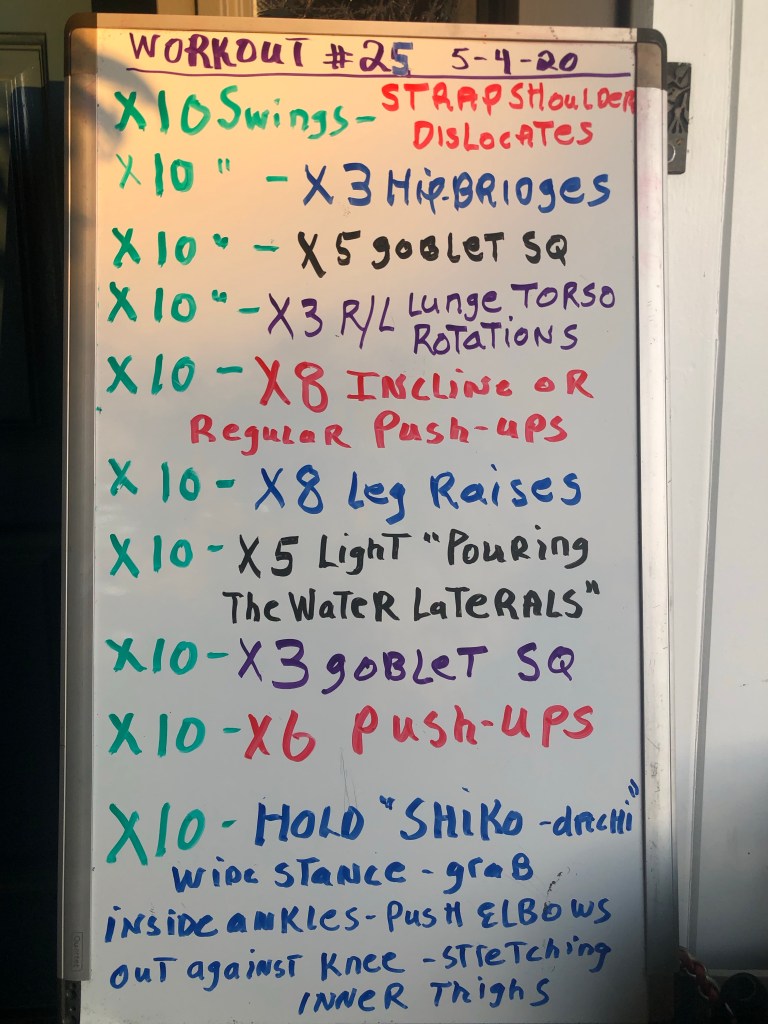 WORKOUT #25 5-4-20
X10 Swings - STRAP SHOULDER
DISLOCATES
X10 " - X3 Hip-BRIDges
X10 " - X5 goBLET SQ
X10 " - X3 R/L Lunge TORSO
ROTATIONS
X10 - X8 INCLINE OR
RegulAR Push-ups
X10 - X8 Leg RAises
X10 - X5 LighT "POURing
The WATER LATERALS"
X10 - X3 goBLET SQ
X10 - X6 Push-UPS
X10 - HOLD "SHIKO-dACHI"
WIDE STANCE - grAB
INSIDE ANKLES - PUSH ELBOWS
OUT AgAINST KNEE - STRETChing
INNER Thighs